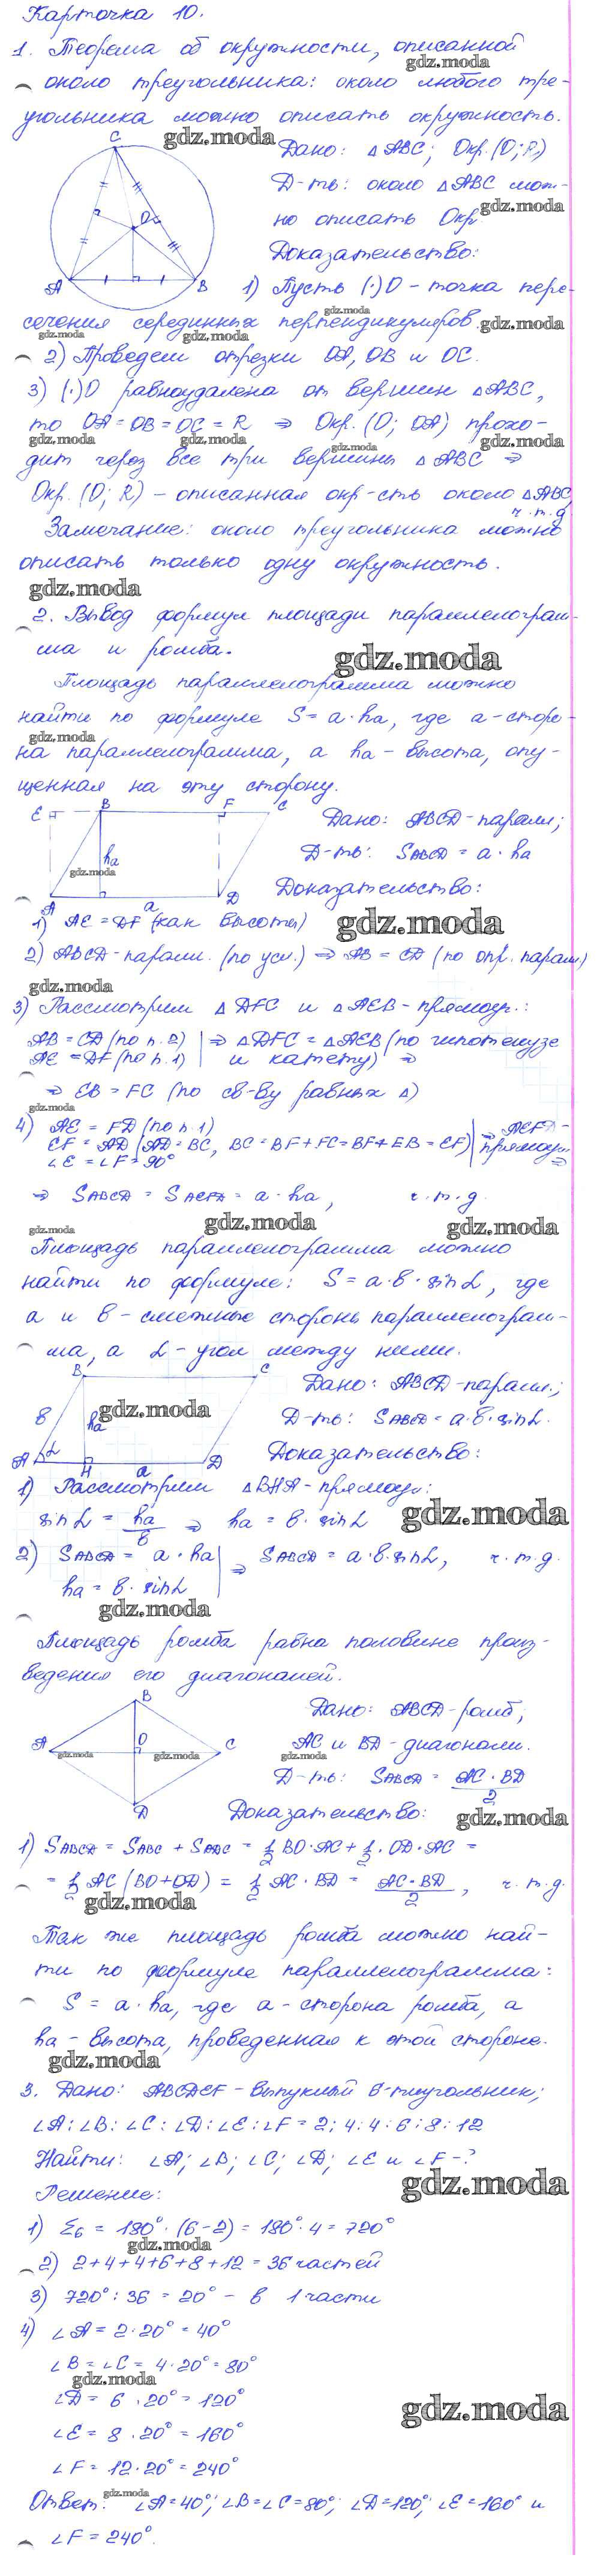 Карточка 10.
1. Теорема об окружности, описанной
около треугольника: около любого тре-
угольника можно описать окружность.
Дано: △ABC; Окр.(O;R)
Д-ть: около △ABC мож-
но описать Окр
Доказательство:
C
O
A
B
1) Пусть (·)O - точка пере-
сечения серединных перпендикуляров.
2) Проведем отрезки OA, OB и OC.
3) (·)O равноудалена от вершин △ABC,
то OA = OB = OC = R ⇒ Окр. (O; OA) прохо-
дит через все три вершины △ABC ⇒
Окр. (O; R) – описанная окр-сть около △ABC,
ч.т.д
Замечание: около треугольника можно
описать только одну окружность.
2. Вывод формул площади параллелограм-
ма и ромба.
Площадь параллелограмма можно
найти по формуле S = a·ha, где a - сторо-
на параллелограмма, а ha - высота, опу-
щенная на эту сторону.
E B F C
ha
A a D
Дано: ABCD - паралл;
Д-ть: SABCD = a · ha
Доказательство:
1) AE = DF (как высоты)
2) ABCD - паралл. (по усл.) ⇒ AB = CD (по опр. паралл)
3) Рассмотрим △DFC и △AEB - прямоуг.:
AB = CD (по п. 2) | ⇒ △DFC = △AEB (по гипотенузе
AE = DF (по п. 1) | и катету) ⇒
⇒ EB = FC (по св-ву равных △)
4) AE = FD (по п. 1) | ⇒ AEFD -
EF = AD (AD = BC, BC = BF + FC = BF + EB = EF) | прямоуг
∠E = ∠F = 90° ⇒
⇒ SABCD = SAEFD = a · ha, ч.т.д.
Площадь параллелограмма можно
найти по формуле: S = a·b·sin α, где
a и b - смежные стороны параллелограм-
ма, а α - угол между ними.
B C
b ha
A α H a D
Дано: ABCD - паралл.;
Д-ть: SABCD = a·b·sin α.
Доказательство:
1) Рассмотрим △BHA - прямоуг:
sin α = ha/b ⇒ ha = b · sin α
2) SABCD = a · ha | ⇒ SABCD = a·b·sin α, ч.т.д.
ha = b · sin α
Площадь ромба равна половине произ-
ведения его диагоналей.
B
A O C
D
Дано: ABCD - ромб;
AC и BD - диагонали.
Д-ть: SABCD = AC · BD / 2
Доказательство:
1) SABCD = SABC + SADC = 1/2 BO·AC + 1/2 · OD·AC =
= 1/2 AC (BO + OD) = 1/2 AC · BD = AC·BD / 2, ч.т.д.
Так же площадь ромба можно най-
ти по формуле параллелограмма:
S = a · ha, где a - сторона ромба, а
ha - высота, проведенная к этой стороне.
3. Дано: ABCDEF - выпуклый 6-тиугольник;
∠A : ∠B : ∠C : ∠D : ∠E : ∠F = 2 : 4 : 4 : 6 : 8 : 12
Найти: ∠A; ∠B; ∠C; ∠D; ∠E и ∠F - ?
Решение:
1) Σ6 = 180° · (6-2) = 180° · 4 = 720°
2) 2+4+4+6+8+12 = 36 частей
3) 720° : 36 = 20° - в 1 части
4) ∠A = 2 · 20° = 40°
∠B = ∠C = 4 · 20° = 80°
∠D = 6 · 20° = 120°
∠E = 8 · 20° = 160°
∠F = 12 · 20° = 240°
Ответ: ∠A = 40°; ∠B = ∠C = 80°; ∠D = 120°; ∠E = 160° и
∠F = 240°.
gdz.moda